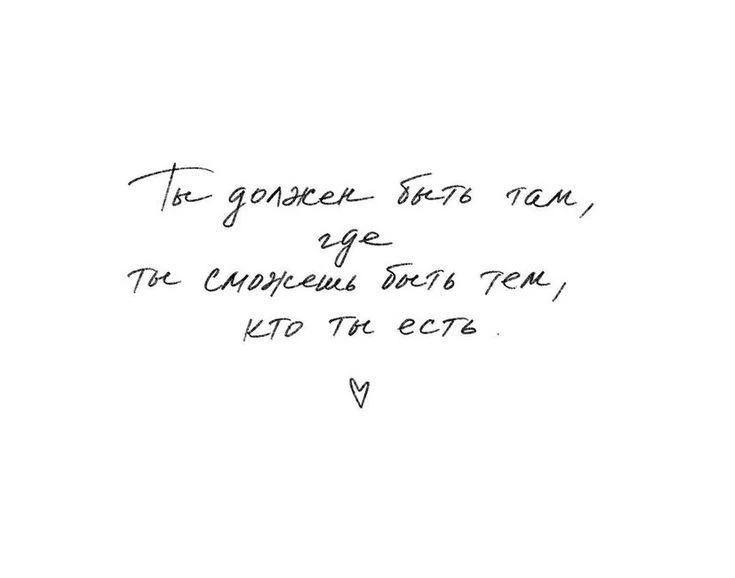 Ты должен быть там,
где
ты сможешь быть тем,
кто ты есть.